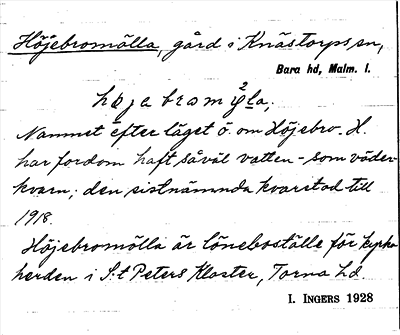 Höjebromölla, gård i Knästorps sn,
Bara hd, Malm. l.
Namnet efter läget ö. om Höjebro. H.
har fordom haft såväl vatten- som väder-
kvarn; den sistnämnda kvarstod till
1918.
Höjebromölla är löneboställe för kyrko-
herden i S:t Peters Kloster, Torna hd.
I. INGERS 1928